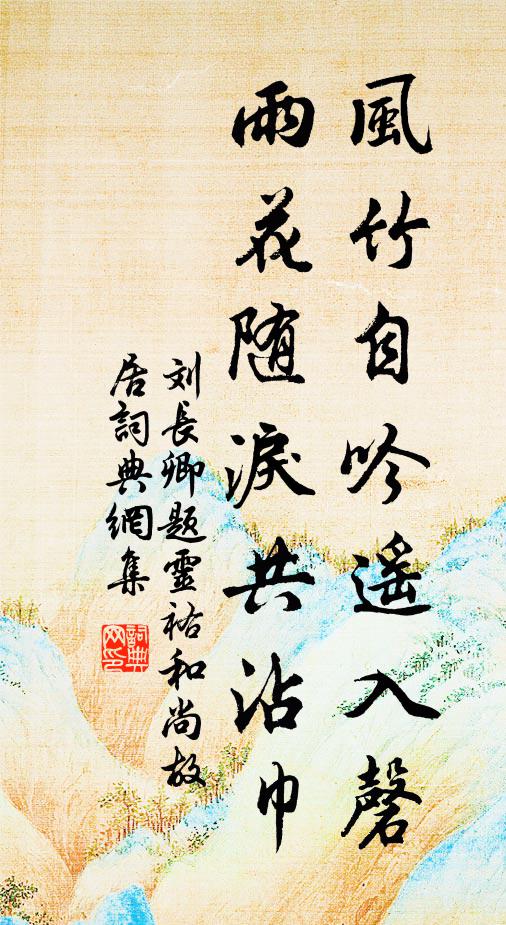 風竹自吟遥入磬
雨花随淚共沾巾
刘長卿題靈祐和尚故
居詞典網集
詞典